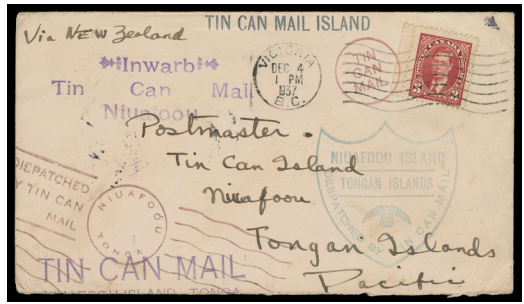 TIN CAN MAIL ISLAND
Via New Zealand
Inwarb
Tin Can Mail
Niuafoou
VICTORIA
DEC 4
1 PM
1937
B.C.
TIN
CAN
MAIL
3 POSTES CANADA POSTAGE 3
Postmaster.
Tin Can Island
Niuafoou
Tongan Islands
Pacific
NIUAFOOU ISLAND
TONGAN ISLANDS
DESPATCHED BY TIN CAN MAIL
DISPATCHED
BY TIN CAN
MAIL
NIUAFOOU
TONGA
TIN CAN MAIL
NIUAFOOU ISLAND TONGA